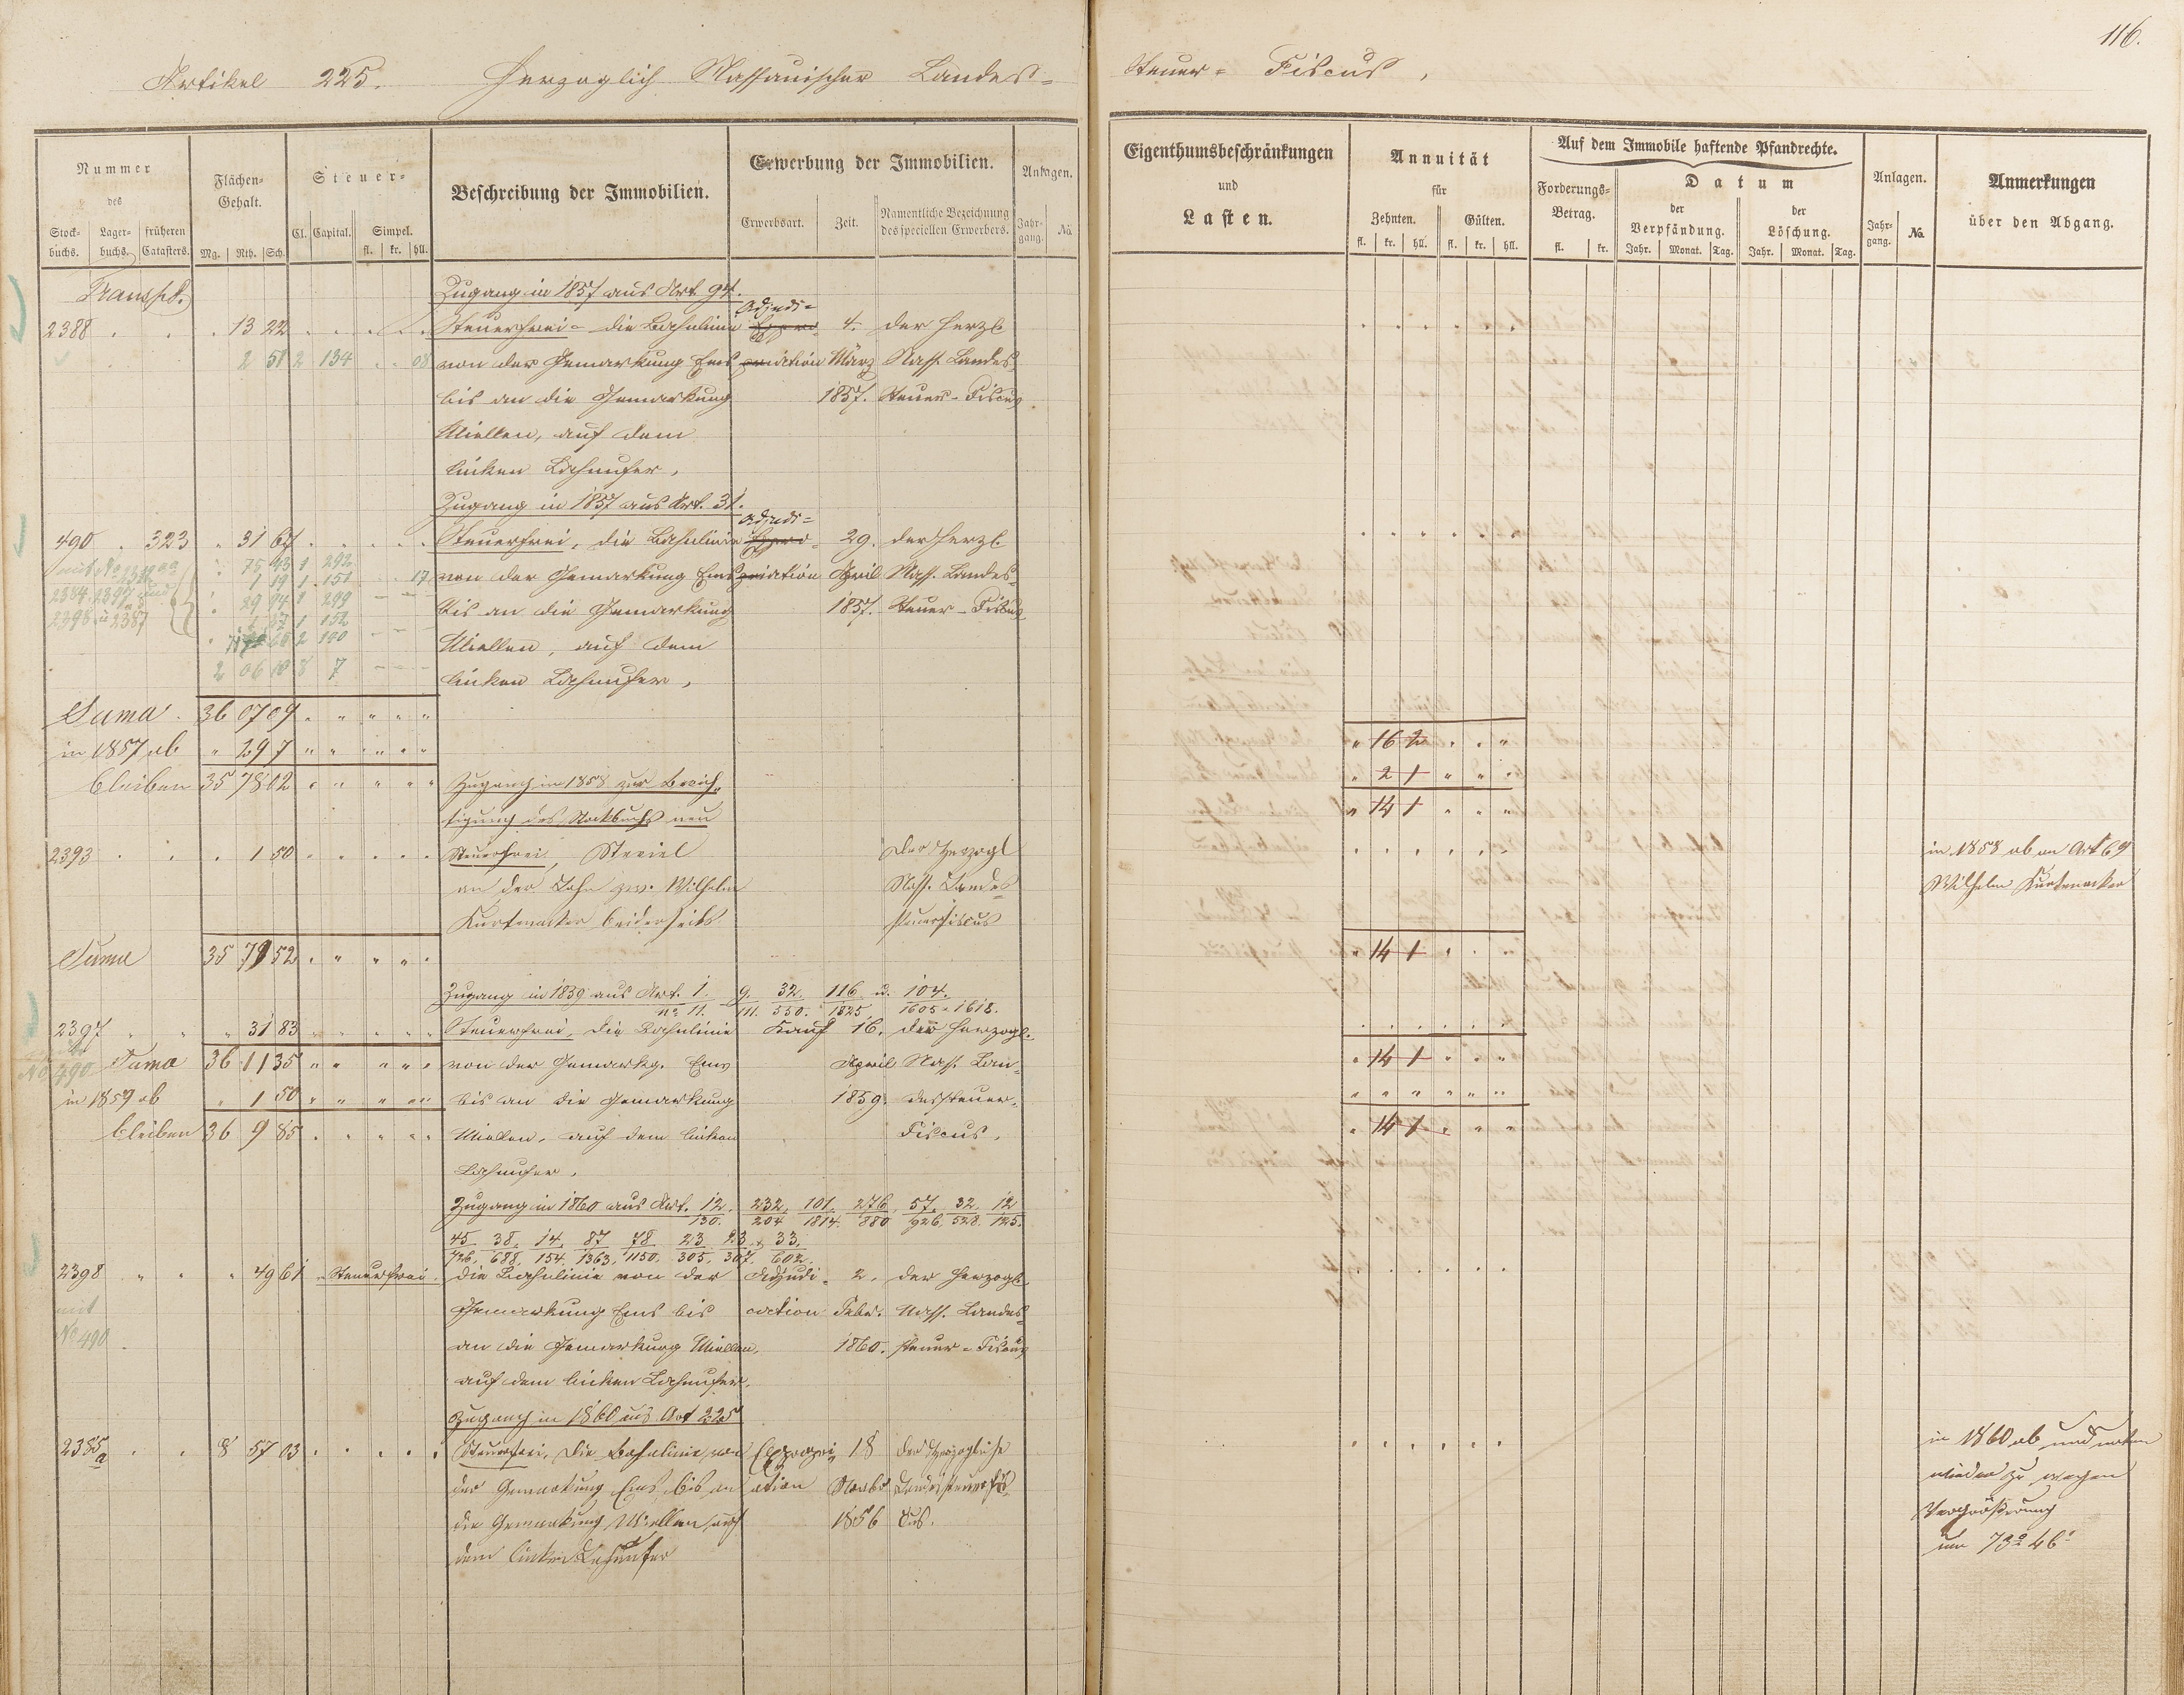 116.
Artikel 225. Herzoglich Nassauischer Landes-
Steuer- Fiscus,
Nummer
des
Stock-buchs. Lager-buchs. früheren Catasters.
Flächen-Gehalt.
Mg. Rth. Sch.
Steuer-
Cl. Capital. Simpel.
fl. kr. hll.
Beschreibung der Immobilien.
Erwerbung der Immobilien.
Erwerbsart. Zeit. Namentliche Bezeichnung des speciellen Erwerbers.
Anlagen.
Jahr-gang. No.
Eigenthumsbeschränkungen
und
Lasten.
Annuität
für
Zehnten. Gülten.
fl. kr. hll. fl. kr. hll.
Auf dem Immobile haftende Pfandrechte.
Forderungs-Betrag.
fl. kr.
Datum
der Verpfändung. der Löschung.
Jahr. Monat. Tag. Jahr. Monat. Tag.
Anlagen.
Jahr-gang. No.
Anmerkungen
über den Abgang.
Transpt.
Zugang in 1857 aus Art 94.
Adjudi-
2388 13 22 Steuerfrei- die Bahnlinie Expro- 4. der Herzl
2 51 2 134 08 von der Gemarkung Ems priation März Nass. Landes
bis an die Gemarkung 1857. Steuer- Fiscus
Miellen, auf dem
linken Lahnufer,
Zugang in 1857 aus Art. 31.
Adjudi-
490 323 31 67 Steuerfrei, die Bahnlinie Expro- 29. der Herzl
75 93 1 292
1 19 1 151 17 von der Gemarkung Ems priation April Nass. Landes-
2384 2397 und 29 94 1 299
2398 u 2387 bis an die Gemarkung 1857. Steuer- Fiscus
1 37 1 152
Miellen, auf dem
2 06 10 8 7 linken Lahnufer,
Suma 36 07 09
in 1857 ab 29 7 16 2
bleiben 35 78 02 Zugang in 1858 zur Berich- 2 1
tigung des Stockbuchs neu 14 1
2393 1 50 Steuerfrei, Steviel der Herzogl in 1858 ab an Art 69
an der Lahn zw. Wilhelm Nass. Landes Wilhelm Kurtenacker
Kurtenacker beiderseits steuerfiscus
Suma 35 79 52 14 1
Zugang in 1859 aus Art. 1. 9. 32. 116 u. 104.
No 11. 111. 550. 1825. 1605 u 1618.
2397 31 83 Steuerfrei, die Bahnlinie Kauf 16. der Herzogl.
No 490 Suma 36 11 35 von der Gemarkg. Ems April Nass. Lan- 14 1
in 1859 ab 1 50 bis an die Gemarkung 1859. dessteuer-
bleiben 36 9 85 Miellen, auf dem linken Fiscus, 14 1
Lahnufer,
Zugang in 1860 aus Art. 12. 232. 101. 276. 57. 32. 12
130. 204 1814. 880 926. 528. 125.
45. 38. 14. 87 78 23. 23. + 33.
726. 688. 154. 1363. 1150. 305. 307. 602.
2398 49 61 Steuerfrei. die Bahnlinie von der Adjudi- 2. der Herzogl.
mit Gemarkung Ems bis cation Febr. Nass. Landes-
No 490 an die Gemarkung Miellen, 1860. steuer- Fiscus
auf dem linken Lahnufer.
Zugang in 1860 aus Art 225
2385a 8 57 03 Steuerfrei, die Bahnlinie von Expropri- 18 der Herzogliche in 1860 ab und unten
der Gemarkung Ems bis an ation Novbr Landessteuerfis- wieder zu wegen
die Gemarkung Miellen auf 1856 cus. Vergrößerung
dem linken Lahnufer um 73° 46'